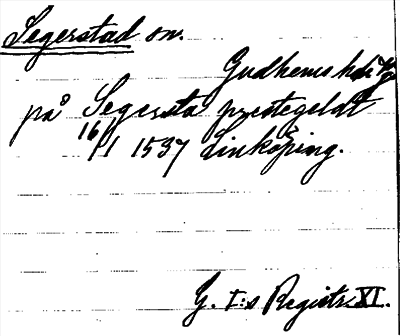 Segerstad sn.
Gudhems hd
på Segersta prestegeldt
16/1 1537 Linköping.
G. I:s Registr. XI.